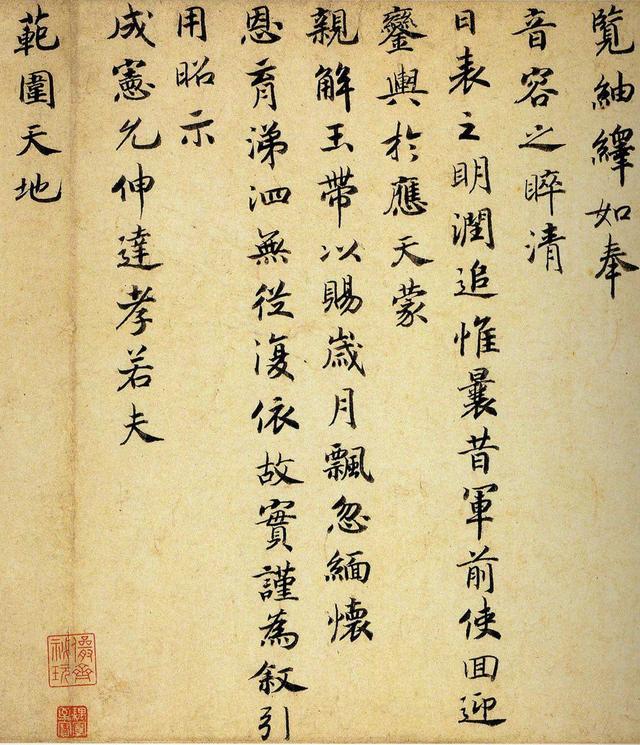 覧紬繹如奉
音容之晬清
日表之明潤追惟曩昔軍前使回迎
鑾輿於應天蒙
親解玉帶以賜歲月飄忽緬懷
恩育涕泗無從復依故實謹為叙引
用昭示
成憲允伸達孝若夫
範圍天地